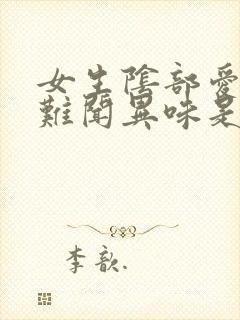 女生陰部愛
難聞異味是
李歆.